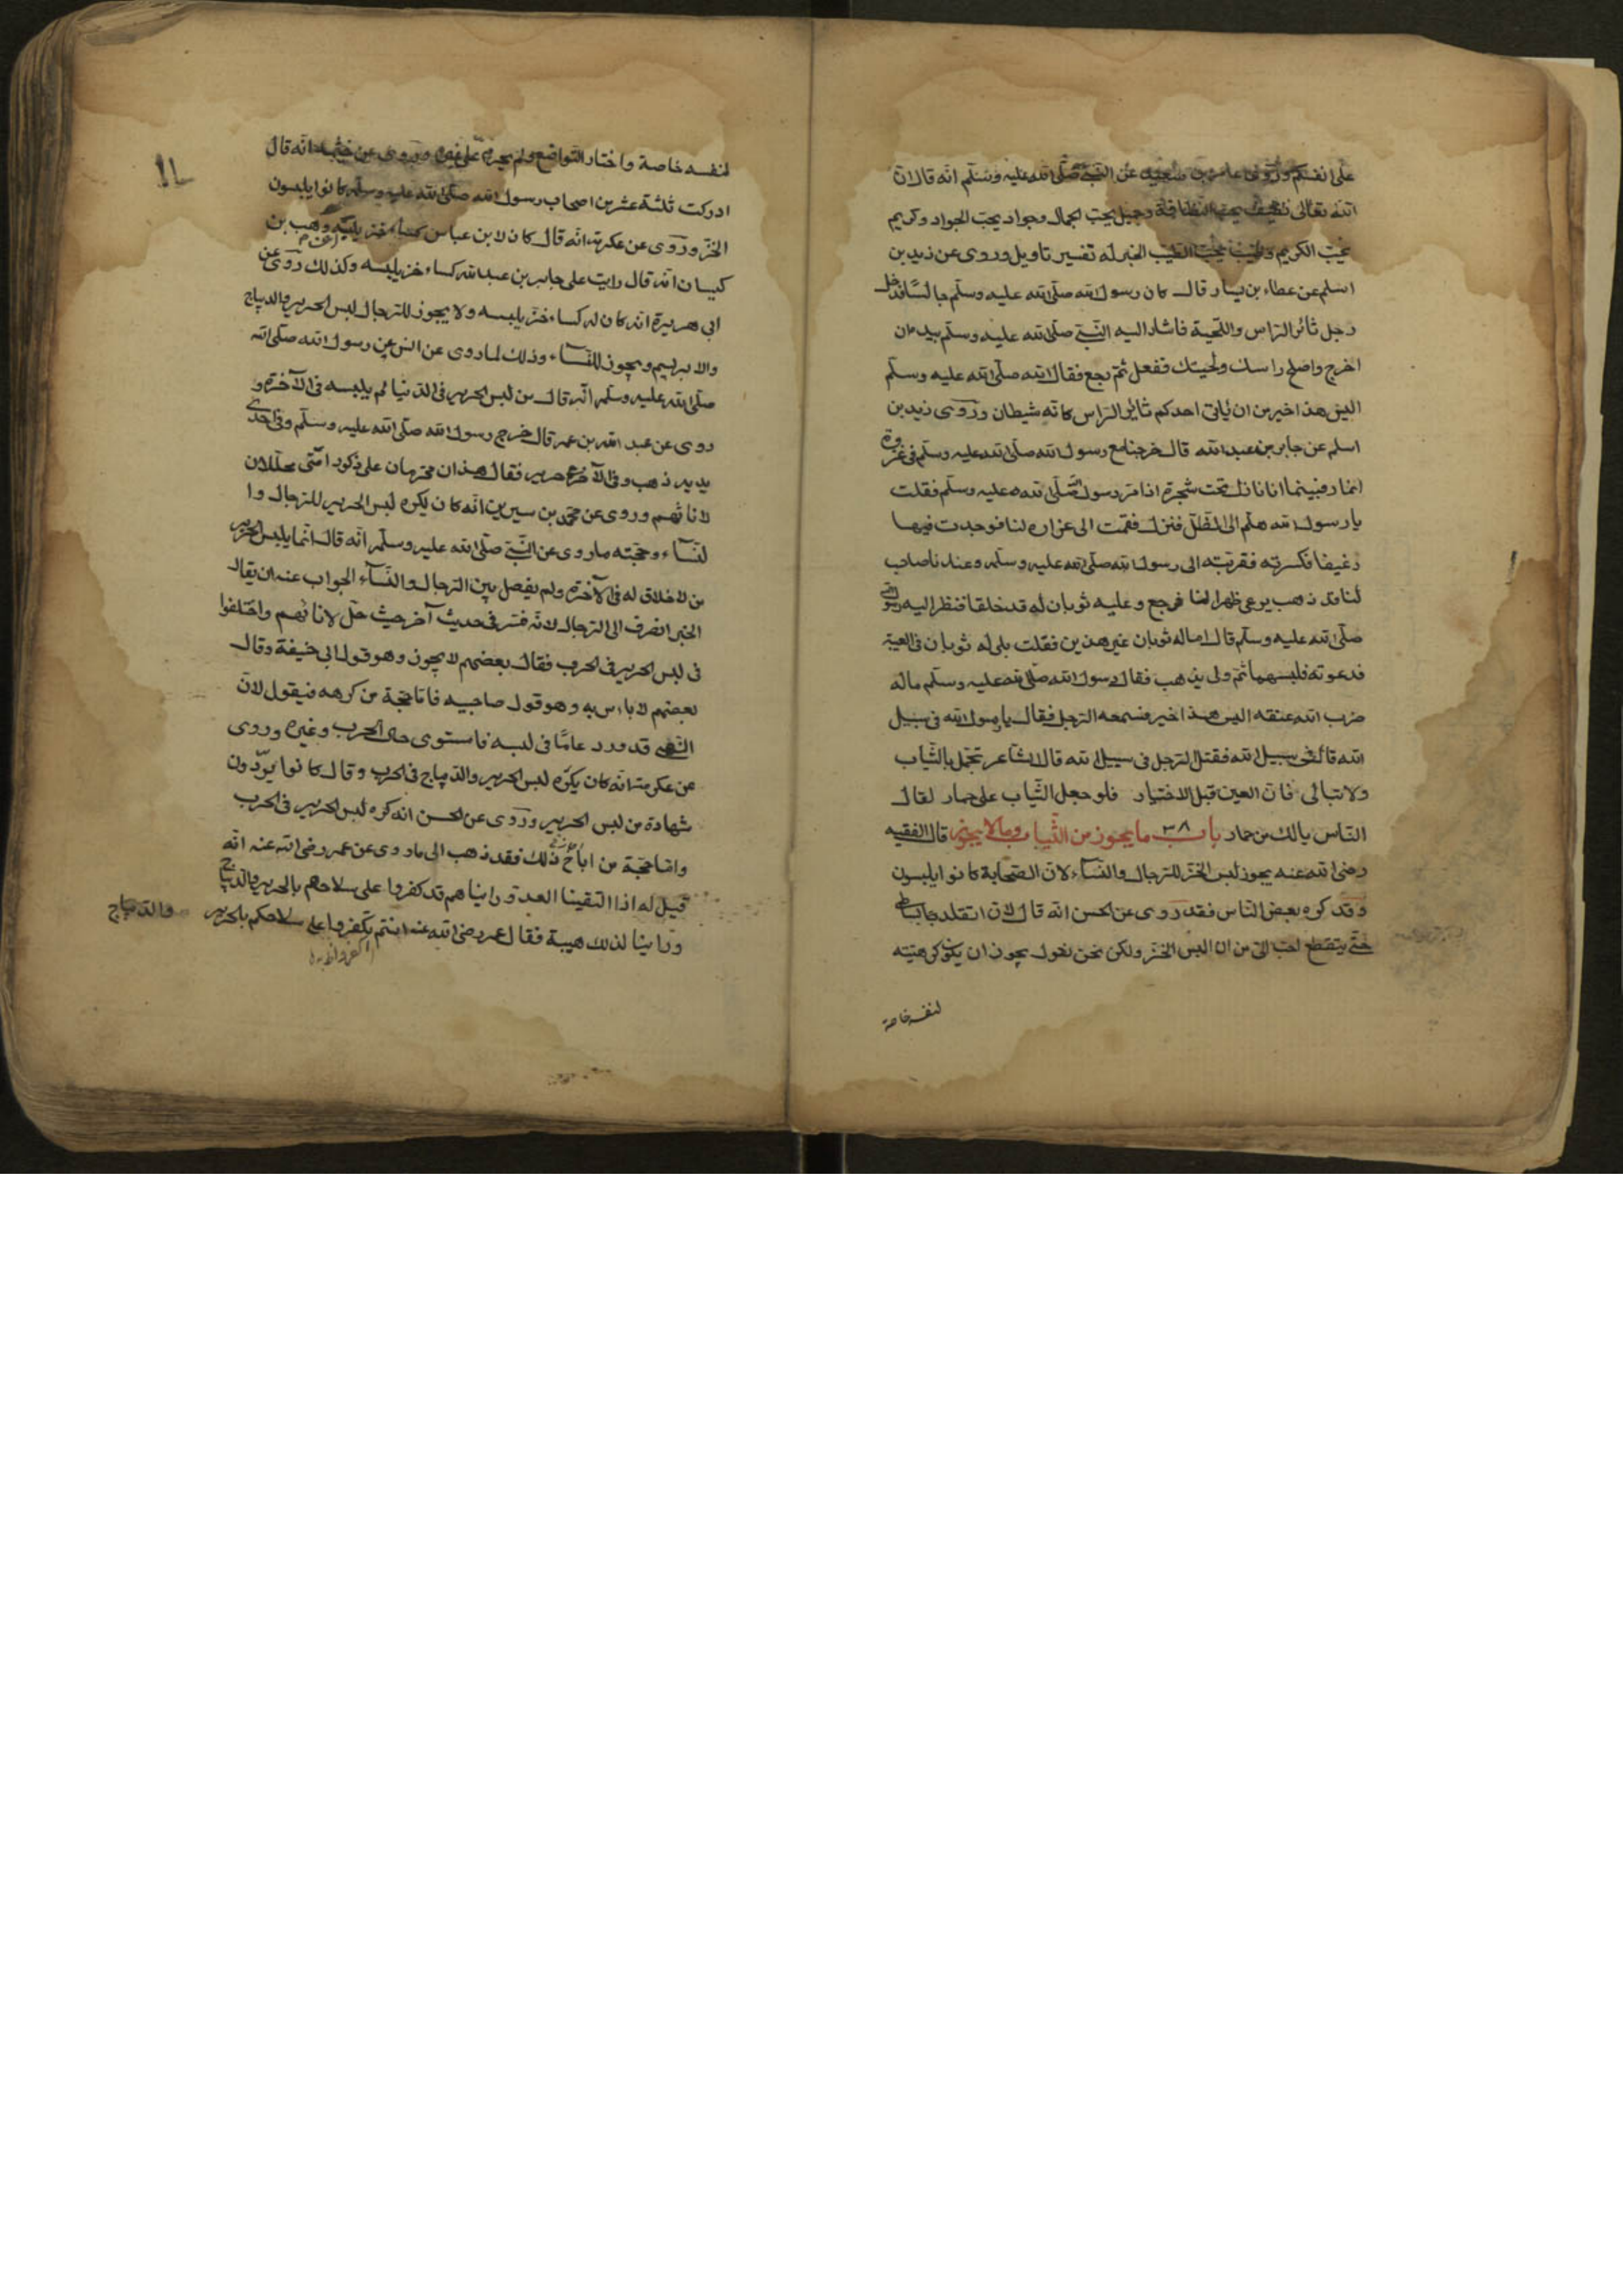 على انفسكم وروى عامر بن سعيد عن النبي صلى الله عليه وسلم انه قال ان
الله تعالى نظيف يحب النظافة وجميل يحب الجمال وجواد يحب الجواد وكريم
يحب الكريم وطيب يحب الطيب الخبر له تفسير تاويل وروى عن زيد بن
اسلم عن عطاء بن يسار قال كان رسول الله صلى الله عليه وسلم جالسا فدخل
رجل ثائر الراس واللحية فاشار اليه النبي صلى الله عليه وسلم بيده ان
اخرج واصلح راسك ولحيتك ففعل ثم رجع فقال الله صلى الله عليه وسلم
اليس هذا خير من ان ياتى احدكم ثائر الراس كانه شيطان وروى زيد بن
اسلم عن جابر بن عبد الله قال خرجنا مع رسول الله صلى الله عليه وسلم فى غزوة
انمار فبينما انا نازل تحت شجرة اذا مر رسول الله صلى الله عليه وسلم فقلت
يا رسول الله هلم الى الظل فنزل فقمت الى غراره لنا فوجدت فيها
رغيفا فكسرته فقربته الى رسول الله صلى الله عليه وسلم وعندنا صاحب
لنا قد ذهب يرعى ظهرا لنا فرجع وعليه ثوبان له قد خلقا فنظر اليه رسول الله
صلى الله عليه وسلم قال اما له ثوبان غير هذين فقلت بلى له ثوبان فى العيبة
فدعوته فلبسهما ثم ولى يذهب فقال رسول الله صلى الله عليه وسلم ماله
ضرب الله عنقه اليس هذا خير فسمعه الرجل فقال يا رسول الله فى سبيل
الله قال فى سبيل الله فقتل الرجل فى سبيل الله قال الشاعر تجمل بالثياب
ولا تبالى فان العين قبل الاختيار فلو جعل الثياب على حمار لقال
الناس يالك من حمار باب ٣٨ ما يجوز من الثياب وما لا يجوز قال الفقيه
رضى الله عنه يجوز لبس الخز للرجال والنساء لان الصحابة كانوا يلبسون
وقد كره بعض الناس فقد روى عن الحسن انه قال لان اتقلد حبا
حتى يتقطع احب الى من ان البس الخز ولكن نحن نقول يجوز ان يكون كرهيته
لنفسه خاصة
لنفسه خاصة واختار التواضع ولم يحرم على غيره وروى عن خيثمة انه قال
ادركت ثلثة عشر من اصحاب رسول الله صلى الله عليه وسلم كانوا يلبسون
الخز وروى عن عكرمة انه قال كان لابن عباس كساء خز يلبسه وهب بن
كيسان انه قال رايت على جابر بن عبد الله كساء خز يلبسه وكذلك روى عن
ابى هريرة انه كان له كساء خز يلبسه ولا يجوز للرجال لبس الحرير والديباج
والابريسم ويجوز للنساء وذلك لما روى عن انس عن رسول الله صلى الله
صلى الله عليه وسلم انه قال من لبس الحرير فى الدنيا لم يلبسه فى الآخرة و
روى عن عبد الله بن عمر قال خرج رسول الله صلى الله عليه وسلم وفى احدى
يديه ذهب وفى الآخرى حرير فقال هذان محرمان على ذكور امتى محللان
لاناثهم وروى عن محمد بن سيرين انه كان يكره لبس الحرير للرجال وا
لنساء وحجته ما روى عن النبي صلى الله عليه وسلم انه قال انما يلبس الحرير
من لا خلاق له فى الآخرة ولم يفصل بين الرجال والنساء الجواب عنه ان يقال
الخبر انصرف الى الرجال لانه فسر فى حديث آخر حيث حل لاناثهم واختلفوا
فى لبس الحرير فى الحرب فقال بعضهم لا يجوز وهو قول ابى حنيفة وقال
بعضهم لا باس به وهو قول صاحبيه فاما حجة من كرهه فيقول لان
النهى قد ورد عاما فى لبسه فاستوى حال الحرب وغيره وروى
عن عكرمة انه كان يكره لبس الحرير والديباج فى الحرب وقال كانوا يودون
شهادة من لبس الحرير وروى عن الحسن انه كره لبس الحرير فى الحرب
واما حجة من اباح ذلك فقد ذهب الى ما روى عن عمر رضى الله عنه انه
قيل له اذا التقينا العدو راينا هم قد كفروا على سلاحهم بالحرير والديباج
وراينا لذلك هيبة فقال عمر رضى الله عنه انتم تكفروا على سلاحكم بالحرير والديباج